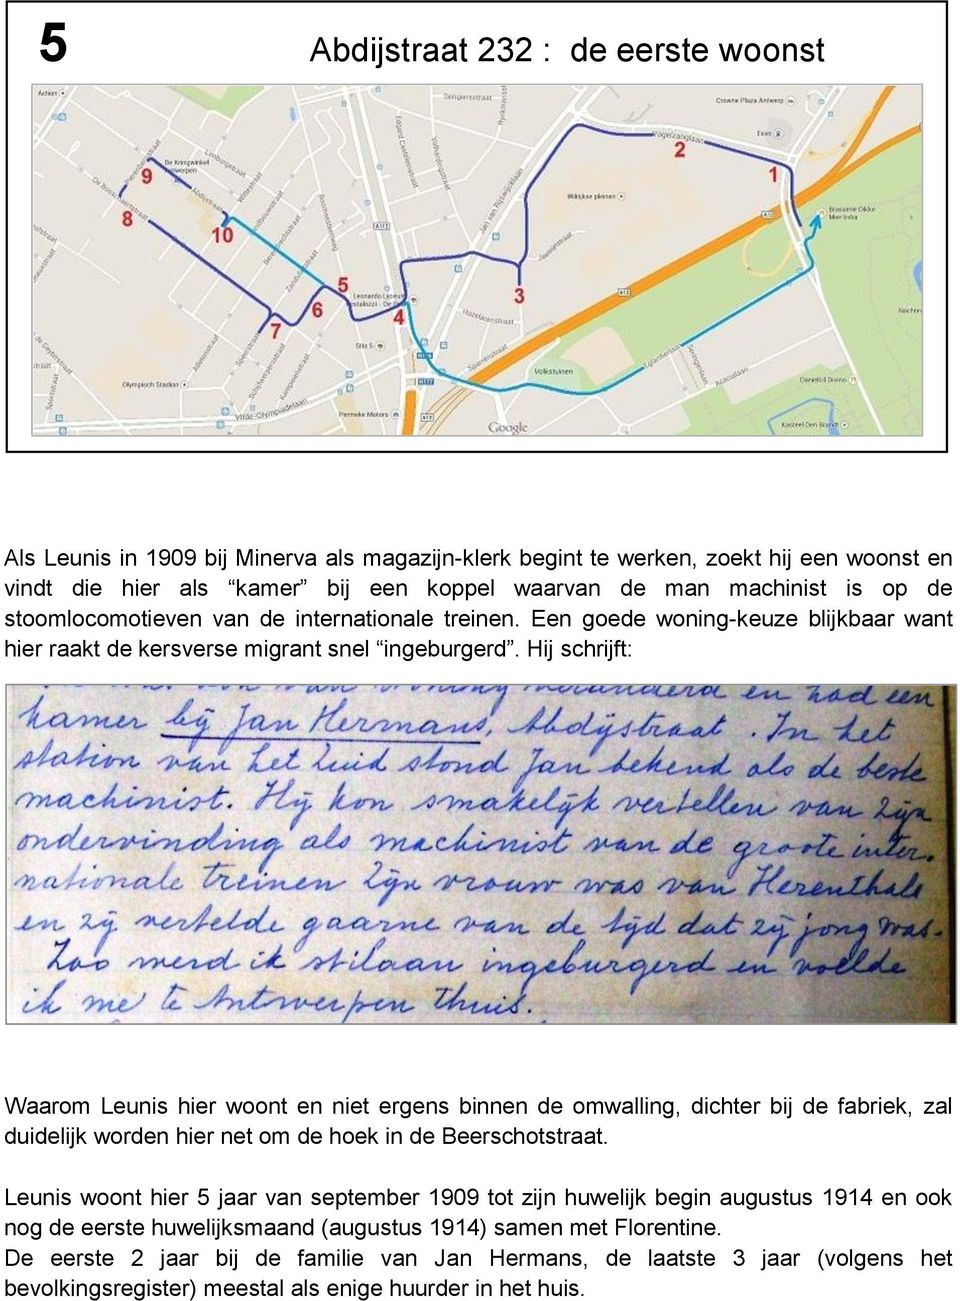 5 Abdijstraat 232 : de eerste woonst
Action
Sengiersstraat
Crowne Plaza Antwerp
Vogelzanglaan
Esso
2
1
De Kringwinkel
Antwerpen
9
Abdijstraat
Wittestraat
8
10
Edgard Casteleinstraat
Volhardingstraat
Jan van Rijswijcklaan
Wilrijkse pleinen
A12
A112
Brasserie Dikke
Mee
Jaspisstraat
5
6
7
4
3
Leonardo Lyceum
Pestalozzi - De
A12
Hazelarenstraat
Site 5
Sparrenstraat
Volkstuinen
Eglantierlaan
Seringenlaan
Acacialaan
Olympisch Stadion
Kampioenstraat
VIIde-Olympiadelaan
Permeke Motors
N177
A12
Google
Daniel Il Divino
Kasteel Den Brandt
Als Leunis in 1909 bij Minerva als magazijn-klerk begint te werken, zoekt hij een woonst en
vindt die hier als “kamer” bij een koppel waarvan de man machinist is op de
stoomlocomotieven van de internationale treinen. Een goede woning-keuze blijkbaar want
hier raakt de kersverse migrant snel “ingeburgerd”. Hij schrijft:
woning veranderd en had een
kamer bij Jan Hermans, Abdijstraat. In het
station van het Zuid stond Jan bekend als de beste
machinist. Hij kon smakelijk vertellen van zijn
ondervinding als machinist van de groote inter.
nationale treinen Zijn vrouw was van Herenthals
en zij vertelde gaarne van de tijd dat zij jong was.
Zoo werd ik stilaan ingeburgerd en voelde
ik me te Antwerpen thuis.
Waarom Leunis hier woont en niet ergens binnen de omwalling, dichter bij de fabriek, zal
duidelijk worden hier net om de hoek in de Beerschotstraat.
Leunis woont hier 5 jaar van september 1909 tot zijn huwelijk begin augustus 1914 en ook
nog de eerste huwelijksmaand (augustus 1914) samen met Florentine.
De eerste 2 jaar bij de familie van Jan Hermans, de laatste 3 jaar (volgens het
bevolkingsregister) meestal als enige huurder in het huis.